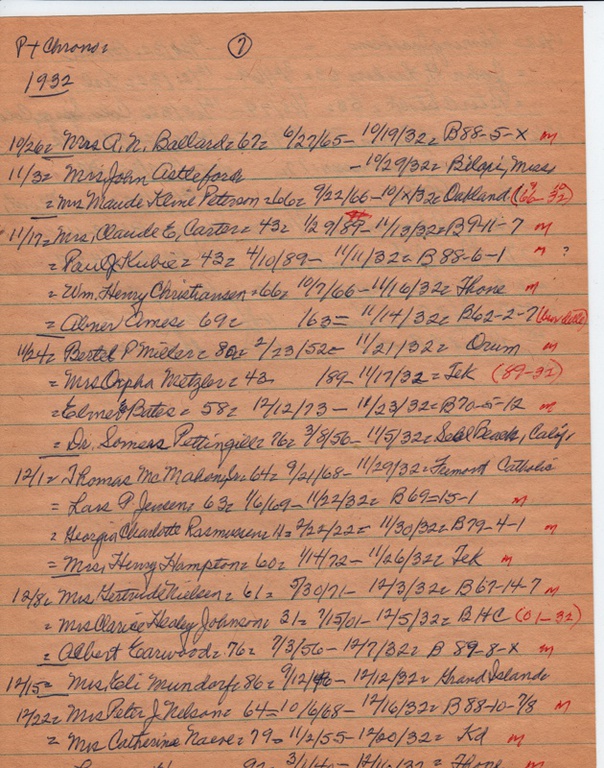 Pt Chrono: 7
1932
10/26= Mrs A. N. Ballard= 67= 6/27/65 - 10/19/32= B88-5-X m
11/3= Mrs John Astleford - 10/29/32= Biloxi, Miss,
= Mrs Maude Kline Peterson=66= 9/22/66 - 10/x/32= Oakland (66-32)
11/17= Mrs, Claude E, Carter= 43= 1/29/89 - 11/13/32= B9-11-7 m
= Paul J Kubie= 43= 4/10/89 - 11/11/32= B88-6-1 m ?
= Wm. Henry Christiansen=66= 10/7/66 - 11/16/32= Thone m
= Abner Ames= 69= /63= 11/14/32= B62-2-7
11/24= Bertel P Miller= 80= 2/23/52= 11/21/32= Orum m
= Mrs Orpha Metzler= 43= /89 - 11/17/32= Tek (89-32)
= Elmer E Bates= 58= 12/12/73 - 11/23/32= B70-5-12 m
= Dr. Somers Pettingill= 76= 3/8/56 - 11/5/32= Seal Beach, Calif,
12/1= Thomas Mc Mahon Jr= 64= 9/21/68 - 11/29/32= Fremont Catholic
= Lars P. Jensen= 63= 1/6/69 - 11/22/32= B69-15-1 m
= Georgia Charlotte Rasmussen= 11= 2/22/22= 11/30/32= B79-4-1 m
= Mrs, Henry Hampton= 60= 1/14/72 - 11/26/32= Tek m
12/8= Mrs Gertrude Nielsen= 61= 5/30/71 - 12/3/32= B67-14-7 m
= Mrs Clarice Healey Johnson= 31= 7/15/01 - 12/5/32= B HC (01-32)
= Albert Earwood= 76= 7/3/56 - 12/7/32= B 89-8-X m
12/15= Mrs Eli Mundorf= 86= 9/12/46 - 12/12/32= Grand Island
12/22= Mrs Peter J. Nelson= 64 - 10/6/68 - 12/16/32= B88-10-7/8 m
= Mrs Catherine Naeve= 79= 11/2/55 - 12/20/32= Kd m